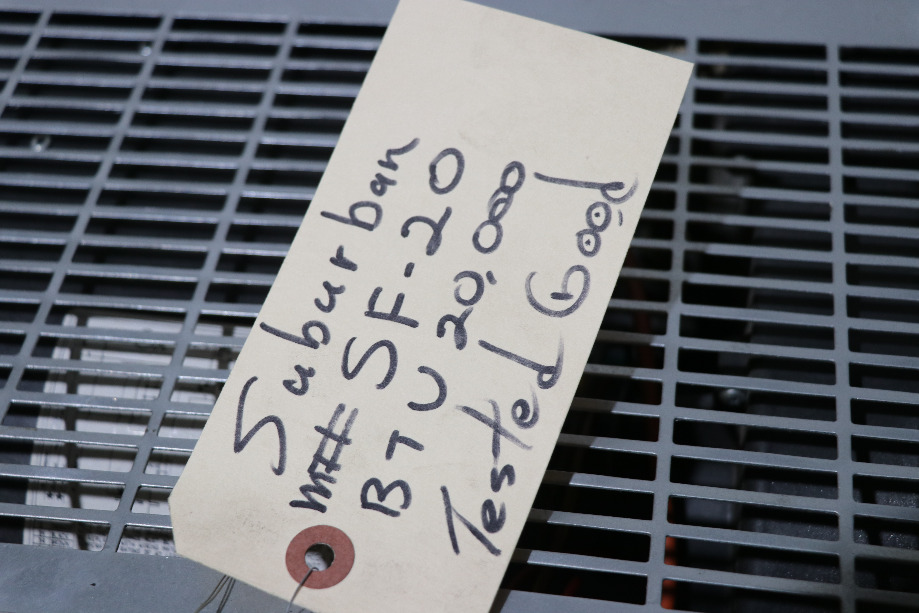 Suburban
M# SF-20
BTU 20,000
Tested Good